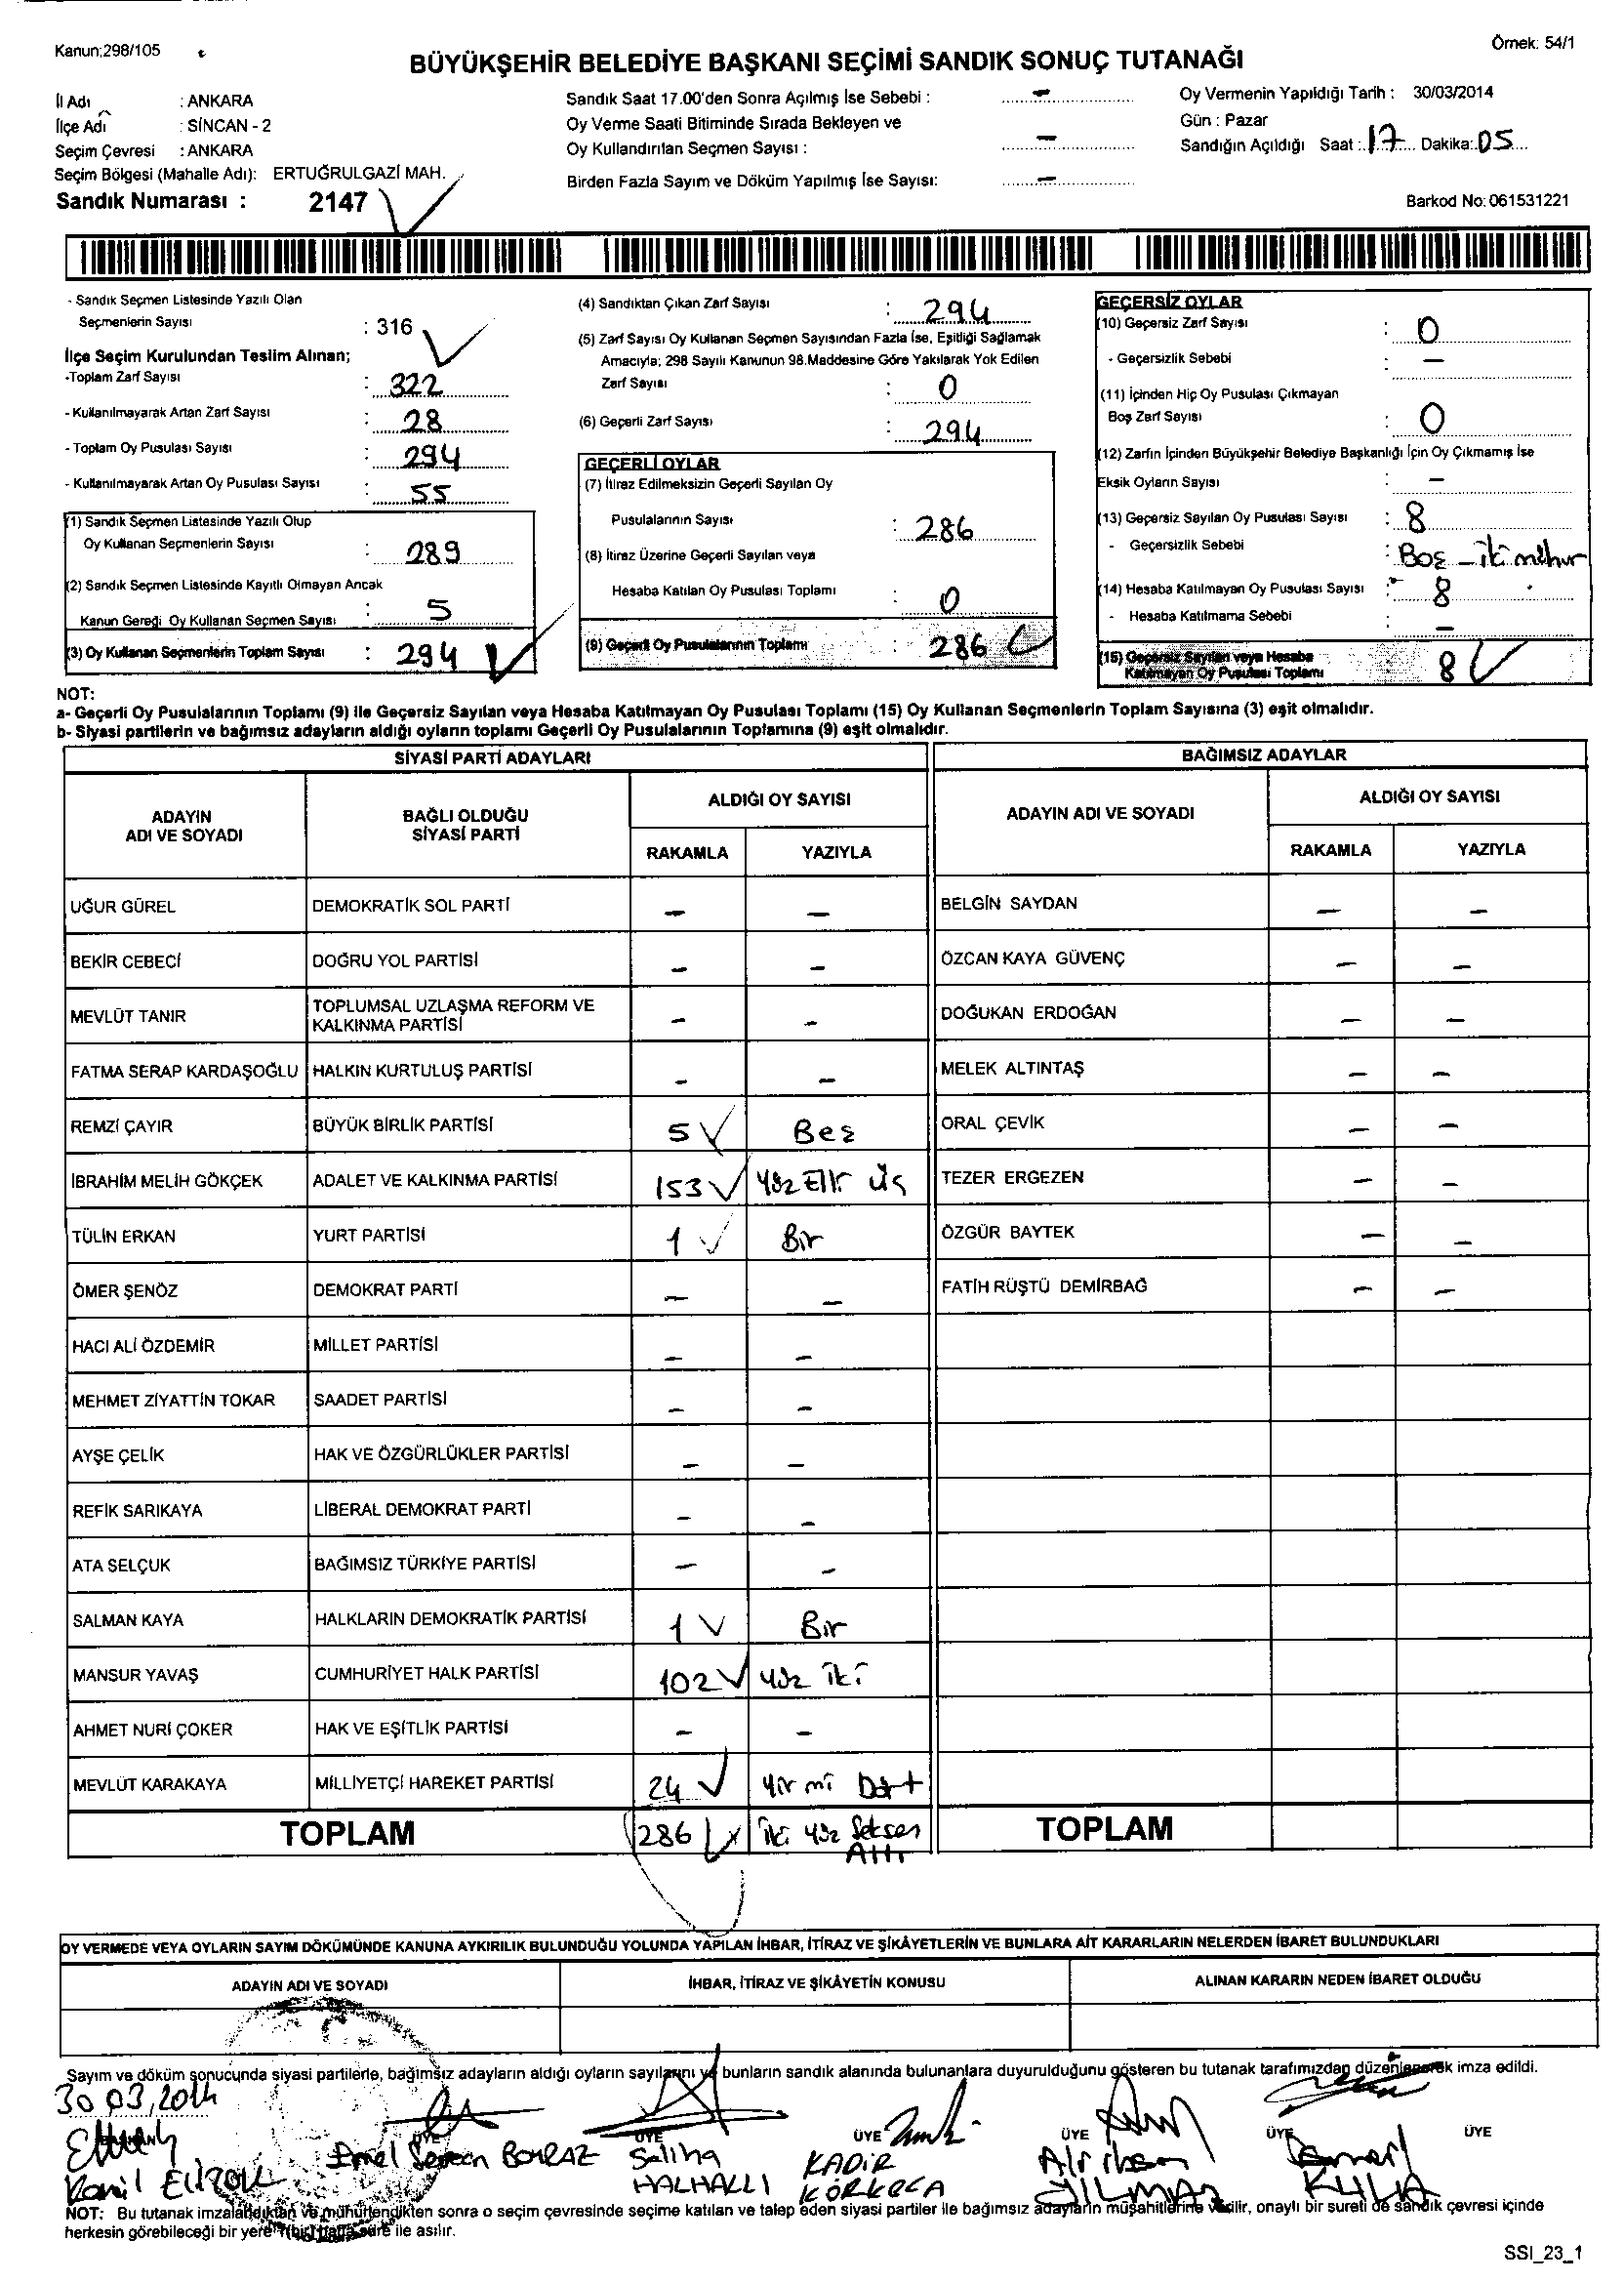 Kanun:298/105
Örnek: 54/1
BÜYÜKŞEHİR BELEDİYE BAŞKANI SEÇİMİ SANDIK SONUÇ TUTANAĞI
İl Adı : ANKARA
İlçe Adı : SİNCAN - 2
Seçim Çevresi : ANKARA
Seçim Bölgesi (Mahalle Adı): ERTUĞRULGAZİ MAH.
Sandık Numarası : 2147
Sandık Saat 17.00'den Sonra Açılmış İse Sebebi : –
Oy Verme Saati Bitiminde Sırada Bekleyen ve
Oy Kullandırılan Seçmen Sayısı : –
Birden Fazla Sayım ve Döküm Yapılmış İse Sayısı: –
Oy Vermenin Yapıldığı Tarih : 30/03/2014
Gün : Pazar
Sandığın Açıldığı Saat : 17 Dakika: 05
Barkod No: 061531221
- Sandık Seçmen Listesinde Yazılı Olan
Seçmenlerin Sayısı : 316
İlçe Seçim Kurulundan Teslim Alınan;
-Toplam Zarf Sayısı : 322
- Kullanılmayarak Artan Zarf Sayısı : 28
- Toplam Oy Pusulası Sayısı : 294
- Kullanılmayarak Artan Oy Pusulası Sayısı : 55
(1) Sandık Seçmen Listesinde Yazılı Olup
Oy Kullanan Seçmenlerin Sayısı : 289
(2) Sandık Seçmen Listesinde Kayıtlı Olmayan Ancak
Kanun Gereği Oy Kullanan Seçmen Sayısı : 5
(3) Oy Kullanan Seçmenlerin Toplam Sayısı : 294
(4) Sandıktan Çıkan Zarf Sayısı : 294
(5) Zarf Sayısı Oy Kullanan Seçmen Sayısından Fazla İse, Eşitliği Sağlamak
Amacıyla; 298 Sayılı Kanunun 98.Maddesine Göre Yakılarak Yok Edilen
Zarf Sayısı : 0
(6) Geçerli Zarf Sayısı : 294
GEÇERLİ OYLAR
(7) İtiraz Edilmeksizin Geçerli Sayılan Oy
Pusulalarının Sayısı : 286
(8) İtiraz Üzerine Geçerli Sayılan veya
Hesaba Katılan Oy Pusulası Toplamı : 0
(9) Geçerli Oy Pusulalarının Toplamı : 286
GEÇERSİZ OYLAR
(10) Geçersiz Zarf Sayısı : 0
- Geçersizlik Sebebi : –
(11) İçinden Hiç Oy Pusulası Çıkmayan
Boş Zarf Sayısı : 0
(12) Zarfın İçinden Büyükşehir Belediye Başkanlığı İçin Oy Çıkmamış İse
Eksik Oyların Sayısı : –
(13) Geçersiz Sayılan Oy Pusulası Sayısı : 8
- Geçersizlik Sebebi : Boş – iki mühür
(14) Hesaba Katılmayan Oy Pusulası Sayısı : 8
- Hesaba Katılmama Sebebi : –
(15) Geçersiz Sayılan veya Hesaba
Katılmayan Oy Pusulası Toplamı : 8
NOT:
a- Geçerli Oy Pusulalarının Toplamı (9) ile Geçersiz Sayılan veya Hesaba Katılmayan Oy Pusulası Toplamı (15) Oy Kullanan Seçmenlerin Toplam Sayısına (3) eşit olmalıdır.
b- Siyasi partilerin ve bağımsız adayların aldığı oyların toplamı Geçerli Oy Pusulalarının Toplamına (9) eşit olmalıdır.
SİYASİ PARTİ ADAYLARI
BAĞIMSIZ ADAYLAR
ADAYIN ADI VE SOYADI
BAĞLI OLDUĞU SİYASİ PARTİ
ALDIĞI OY SAYISI
RAKAMLA YAZIYLA
ADAYIN ADI VE SOYADI
ALDIĞI OY SAYISI
RAKAMLA YAZIYLA
UĞUR GÜREL DEMOKRATİK SOL PARTİ – – BELGİN SAYDAN – –
BEKİR CEBECİ DOĞRU YOL PARTİSİ – – ÖZCAN KAYA GÜVENÇ – –
MEVLÜT TANIR TOPLUMSAL UZLAŞMA REFORM VE KALKINMA PARTİSİ – – DOĞUKAN ERDOĞAN – –
FATMA SERAP KARDAŞOĞLU HALKIN KURTULUŞ PARTİSİ – – MELEK ALTINTAŞ – –
REMZİ ÇAYIR BÜYÜK BİRLİK PARTİSİ 5 Beş ORAL ÇEVİK – –
İBRAHİM MELİH GÖKÇEK ADALET VE KALKINMA PARTİSİ 153 Yüz Elli üç TEZER ERGEZEN – –
TÜLİN ERKAN YURT PARTİSİ 1 Bir ÖZGÜR BAYTEK – –
ÖMER ŞENÖZ DEMOKRAT PARTİ – – FATİH RÜŞTÜ DEMİRBAĞ – –
HACI ALİ ÖZDEMİR MİLLET PARTİSİ – –
MEHMET ZİYATTİN TOKAR SAADET PARTİSİ – –
AYŞE ÇELİK HAK VE ÖZGÜRLÜKLER PARTİSİ – –
REFİK SARIKAYA LİBERAL DEMOKRAT PARTİ – –
ATA SELÇUK BAĞIMSIZ TÜRKİYE PARTİSİ – –
SALMAN KAYA HALKLARIN DEMOKRATİK PARTİSİ 1 Bir
MANSUR YAVAŞ CUMHURİYET HALK PARTİSİ 102 Yüz iki
AHMET NURİ ÇOKER HAK VE EŞİTLİK PARTİSİ – –
MEVLÜT KARAKAYA MİLLİYETÇİ HAREKET PARTİSİ 24 Yirmi Dört
TOPLAM 286 iki yüz Seksen Altı TOPLAM
OY VERMEDE VEYA OYLARIN SAYIM DÖKÜMÜNDE KANUNA AYKIRILIK BULUNDUĞU YOLUNDA YAPILAN İHBAR, İTİRAZ VE ŞİKÂYETLERİN VE BUNLARA AİT KARARLARIN NELERDEN İBARET BULUNDUKLARI
ADAYIN ADI VE SOYADI İHBAR, İTİRAZ VE ŞİKÂYETİN KONUSU ALINAN KARARIN NEDEN İBARET OLDUĞU
Sayım ve döküm sonucunda siyasi partilerle, bağımsız adayların aldığı oyların sayılarını ve bunların sandık alanında bulunanlara duyurulduğunu gösteren bu tutanak tarafımızdan düzenlenerek imza edildi.
30.03.2014
ÜYE ÜYE ÜYE ÜYE ÜYE ÜYE
Emel BOYRAZ Saliha KADİR Ali ihsan İsmail
HALHALLI KÖRKOCA YILMAZ
NOT: Bu tutanak imzalandıktan ve mühürlendikten sonra o seçim çevresinde seçime katılan ve talep eden siyasi partiler ile bağımsız adayların müşahitlerine verilir, onaylı bir sureti de sandık çevresi içinde
herkesin görebileceği bir yere 1(bir) hafta süre ile asılır.
SSI_23_1